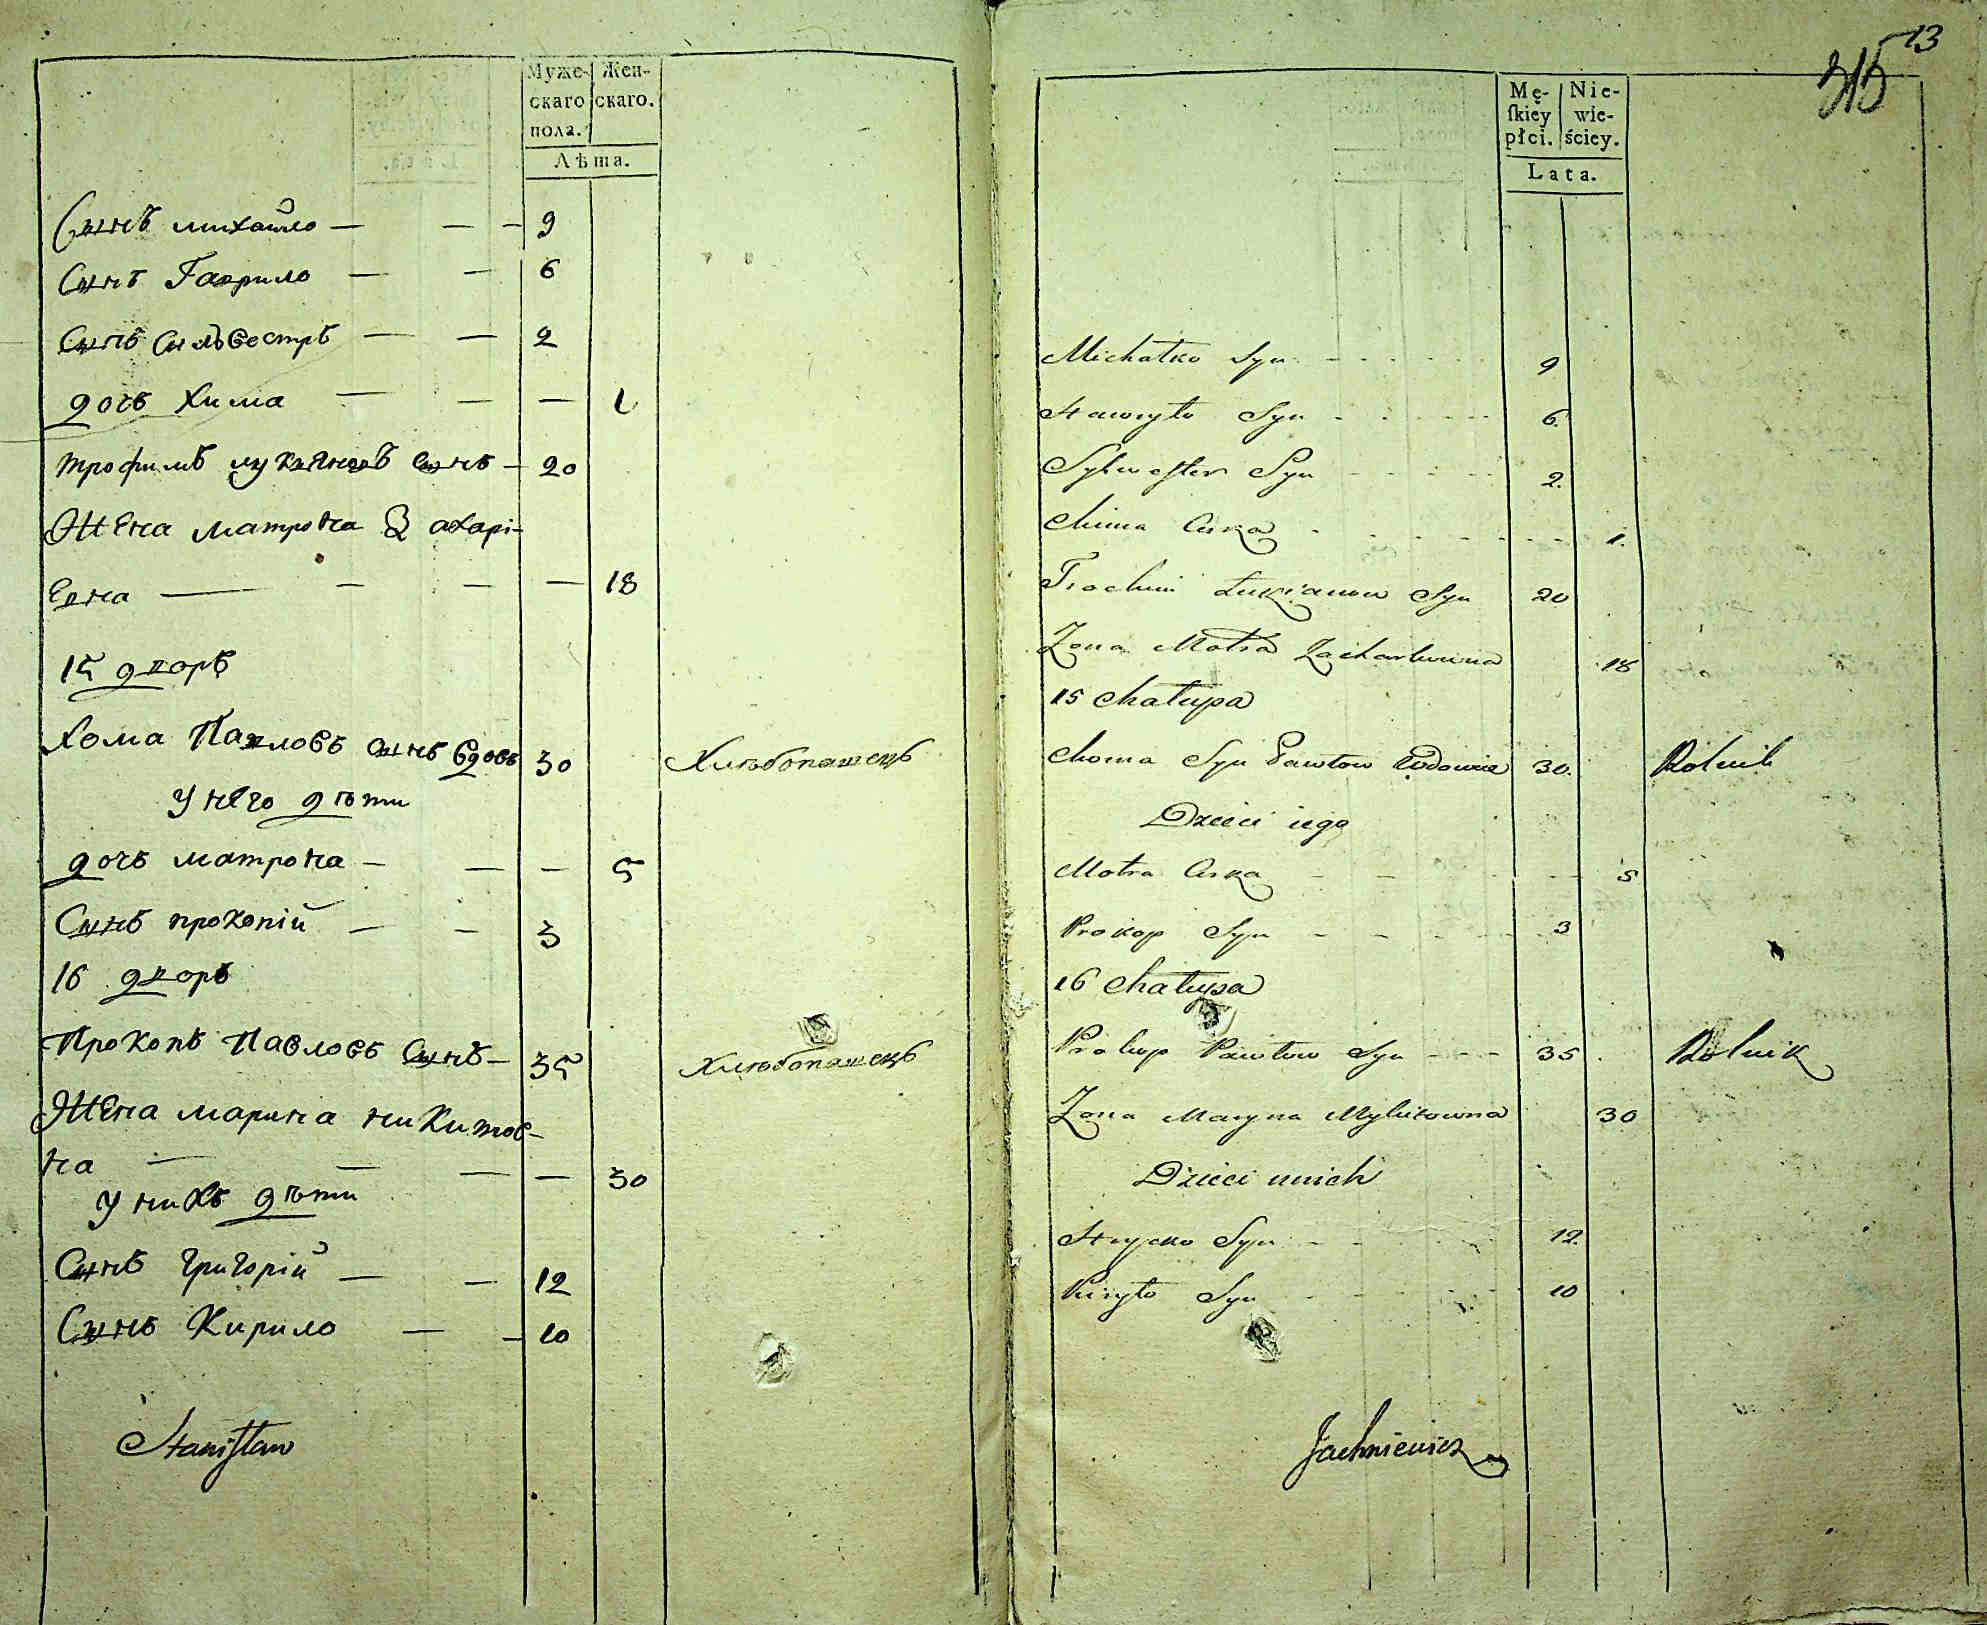 Муже-
скаго
пола.
Жен-
скаго.
Лѣта.
Сынъ михайло — — — 9
Сынъ Гаврило — — 6
Сынъ Сильвестръ — — 2
дочь Хима — — — 1
трофимъ лукяновъ сынъ — 20
Жена матрона Захарі-
евна — — — — 18
15 дворъ
Хома Павловъ сынъ вдовъ 30 Хлѣбопашецъ
у него дѣти
дочь матрона — — — 5
Сынъ прокопій — — 3
16 дворъ
Прокопъ Павловъ Сынъ — 35 Хлѣбопашецъ
Жена марина никитов-
на — — — — 30
у нихъ дѣти
Сынъ григорій — — 12
Сынъ Кирило — — 10
Stanisław
13
315
Mę-
ſkiey
płci.
Nie-
wie-
ściey.
Lata.
Michałko Syn 9
Hawryło Syn 6.
Sylwester Syn 2.
Chima Curka 1.
Trochim Łukianow Syn 20
Zona Motra Zacharkowna 18
15 Chałupa
Choma Syn Pawłow Wdowiec 30. Rolnik
Dzieci iego
Motra Curka 5
Prokop Syn 3
16 Chałupa
Prokop Pawłow Syn 35 Rolnik
Zona Maryna Mykitowna 30
Dzieci unich
Hryćko Syn 12.
Kiryło Syn 10
Jachniewicz